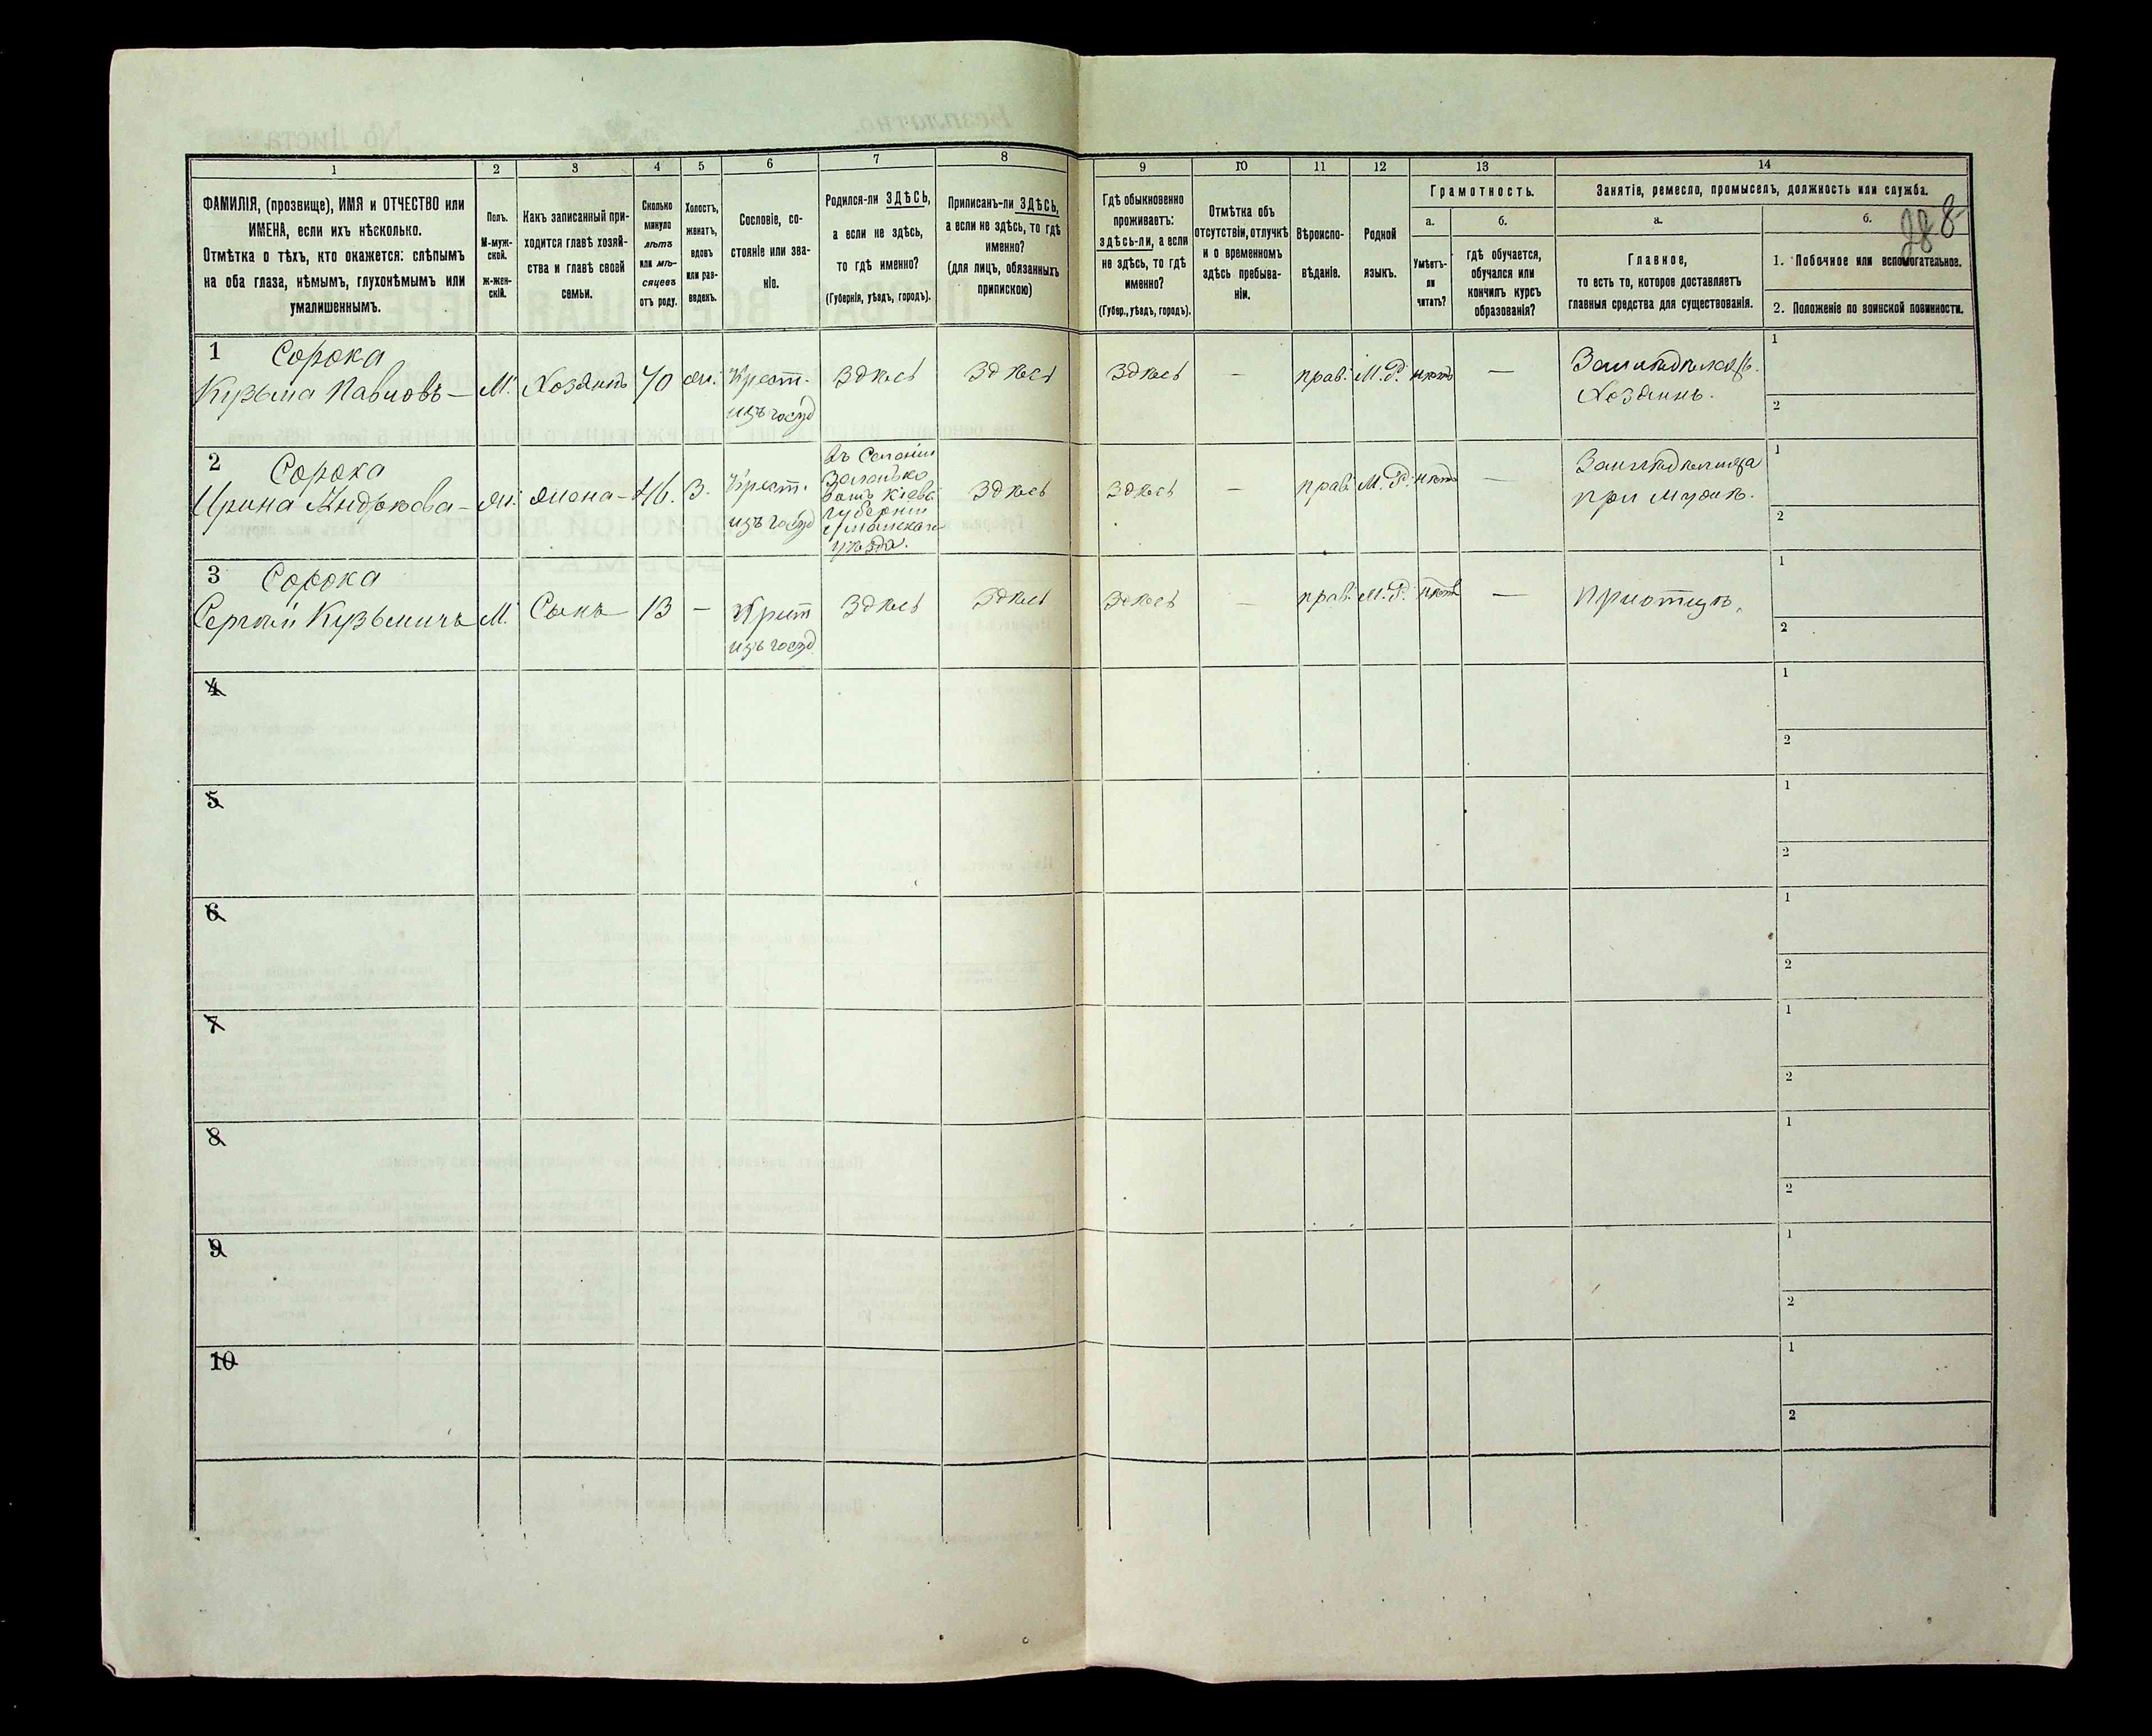 1
2
3
4
5
6
7
8
9
10
11
12
13
14
ФАМИЛІЯ, (прозвище), ИМЯ и ОТЧЕСТВО или
ИМЕНА, если ихъ нѣсколько.
Отмѣтка о тѣхъ, кто окажется: слѣпымъ
на оба глаза, нѣмымъ, глухонѣмымъ или
умалишеннымъ.
Полъ.
М-муж-
ской.
ж-жен-
скій.
Какъ записанный при-
ходится главѣ хозяй-
ства и главѣ своей
семьи.
Сколько
минуло
лѣтъ
или мѣ-
сяцевъ
отъ роду.
Холостъ,
женатъ,
вдовъ
или раз-
веденъ.
Сословіе, со-
стояніе или зва-
ніе.
Родился-ли ЗДѢСЬ,
а если не здѣсь,
то гдѣ именно?
(Губернія, уѣздъ, городъ).
Приписанъ-ли ЗДѢСЬ,
а если не здѣсь, то гдѣ
именно?
(для лицъ, обязанныхъ
припискою)
Гдѣ обыкновенно
проживаетъ:
здѣсь-ли, а если
не здѣсь, то гдѣ
именно?
(Губер., уѣздъ, городъ).
Отмѣтка объ
отсутствіи, отлучкѣ
и о временномъ
здѣсь пребыва-
ніи.
Вѣроиспо-
вѣданіе.
Родной
языкъ.
Грамотность.
а.
б.
Умѣетъ-
ли
читать?
гдѣ обучается,
обучался или
кончилъ курсъ
образованія?
Занятіе, ремесло, промыселъ, должность или служба.
а.
б.
288
Главное,
то есть то, которое доставляетъ
главныя средства для существованія.
1. Побочное или вспомогательное.
2. Положеніе по воинской повинности.
1 Сорока
Кузьма Павловъ —
М.
Хозяинъ
70
ж.
Крест.
изъ госуд
Здѣсь
Здѣсь
Здѣсь
—
прав.
М.Р.
нѣтъ
—
Земледѣлецъ.
Хозяинъ.
1
2
2 Сорока
Ирина
ж.
жена —
46.
З.
Крест.
изъ госуд
губерніи
уѣзда.
Здѣсь
Здѣсь
—
прав.
М.Р.
нѣтъ
—
при мужѣ.
1
2
3 Сорока
Сергѣй Кузьмичъ
М.
Сынъ —
13
—
Крест
изъ госуд.
Здѣсь
Здѣсь
Здѣсь
—
прав.
М.Р.
нѣтъ
—
При отцѣ.
1
2
4
1
2
5
1
2
6
1
2
7
1
2
8
1
2
9
1
2
10
1
2